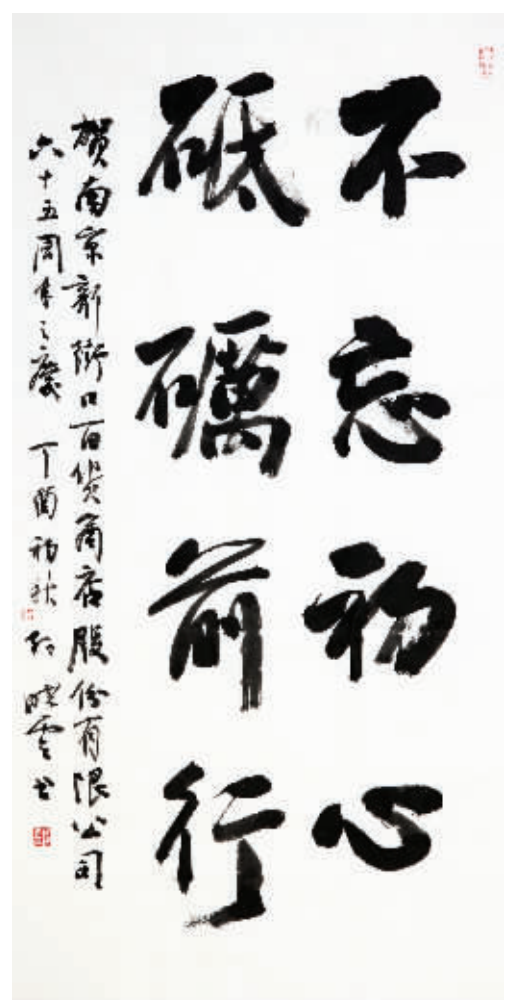 不忘初心
砥礪前行
賀南京新街口百貨商店股份有限公司
六十五周年之慶 丁酉初秋 孫曉雲書